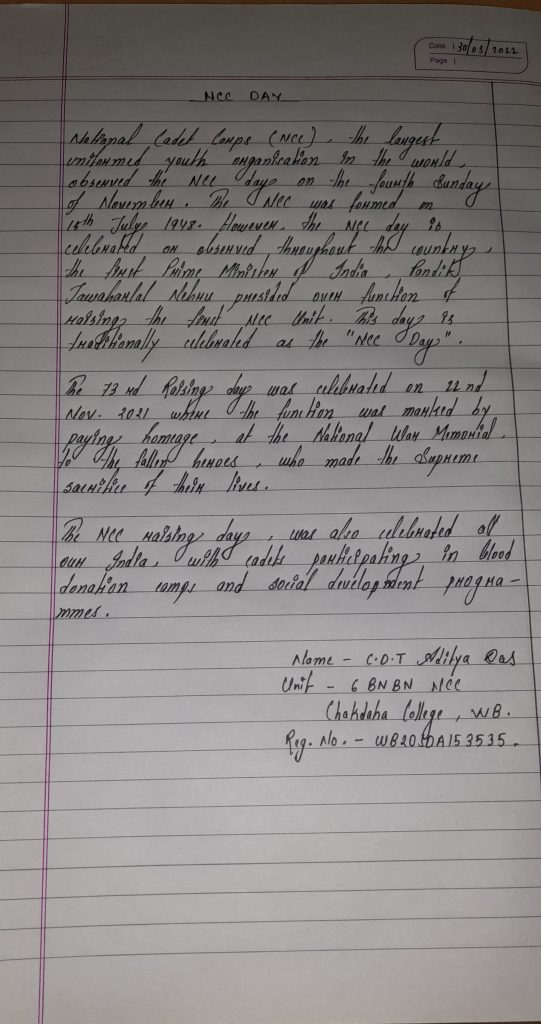 Date 30/03/2022
Page
NCC DAY
National Cadet Corps (NCC), the largest
uniformed youth organisation in the world,
observed the NCC day on the fourth Sunday
of November. The NCC was formed on
15th July 1948. However, the NCC day is
celebrated or observed throughout the country,
the first Prime Minister of India, Pandit
Jawaharlal Nehru presided over function of
raising the first NCC Unit. This day is
traditionally celebrated as the "NCC Day".
The 73 rd Raising day was celebrated on 22 nd
Nov. 2021 where the function was marked by
paying homeage, at the National War Memorial,
to the fallen heroes, who made the Supreme
sacrifice of their lives.
The NCC raising day, was also celebrated all
our India, with cadets participating in blood
donation camps and social development progra-
mmes.
Name - C.D.T Aditya Das
Unit - 6 BN BN NCC
Chakdaha College, WB.
Reg. No. - WB20SDA153535.